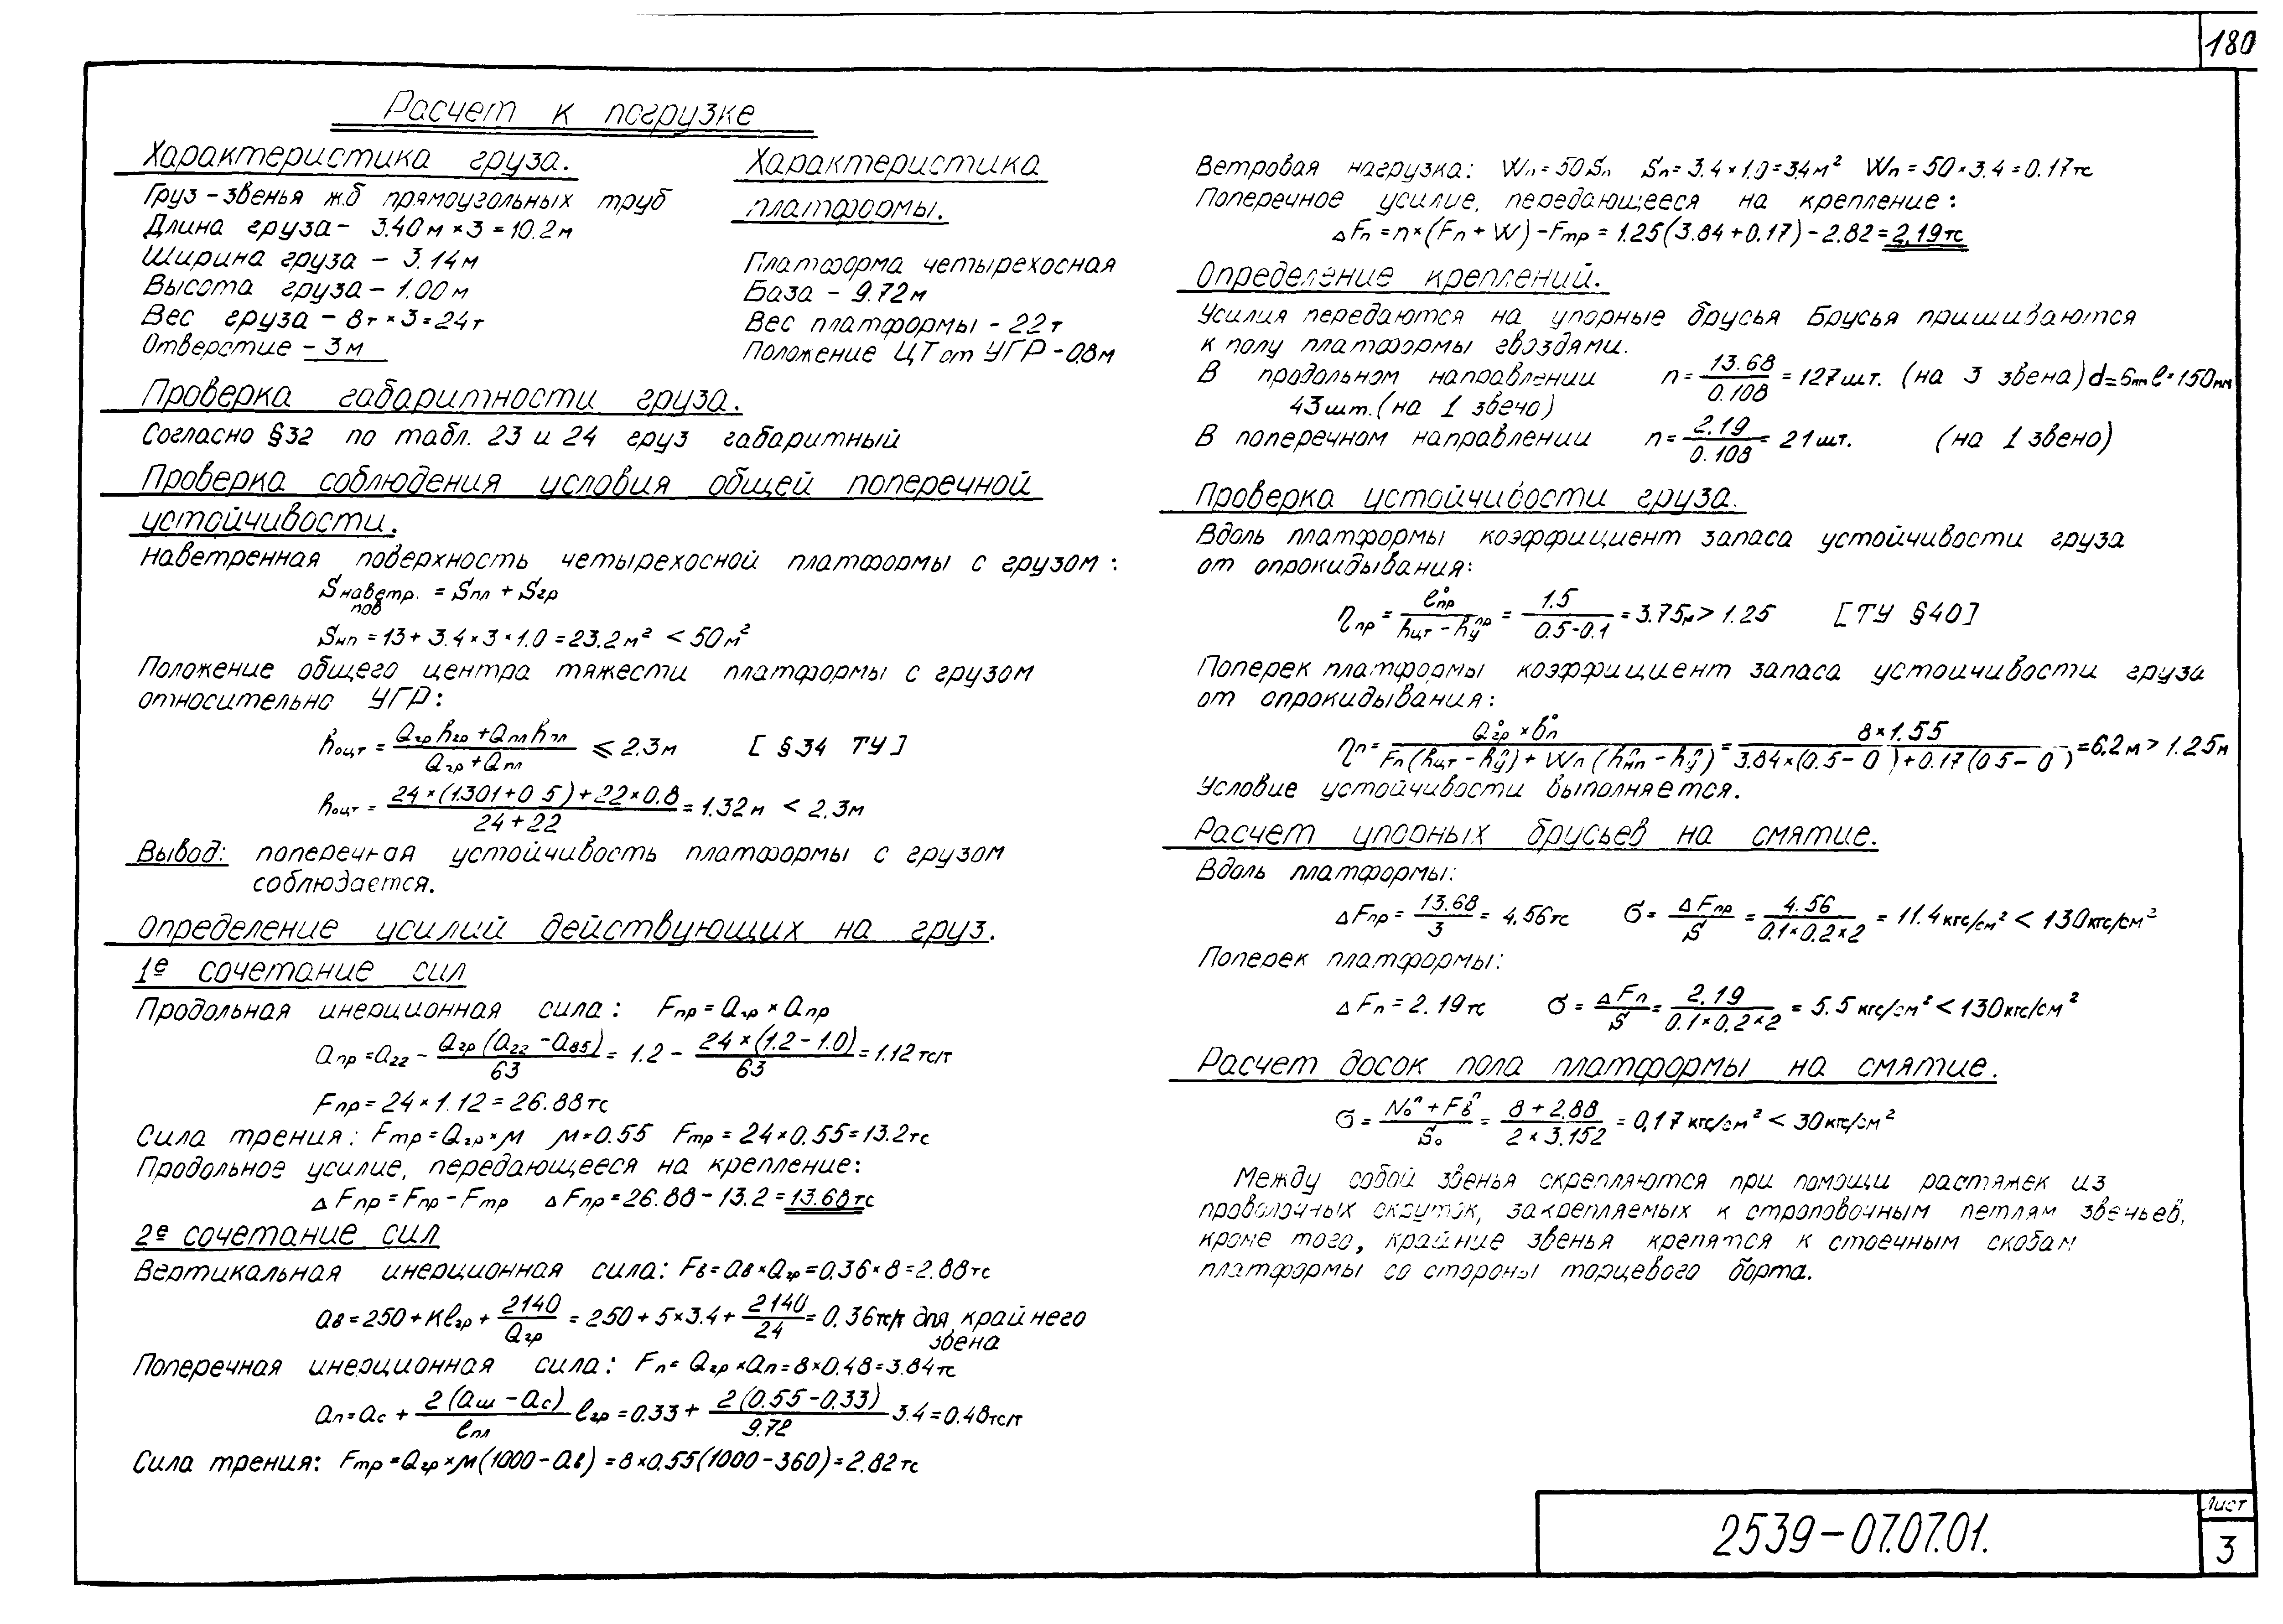 180
Расчет к погрузке
Характеристика груза.
Груз – звенья ж.б прямоугольных труб
Длина груза – 3.40 м × 3 = 10.2 м
Ширина груза – 3.14 м
Высота груза – 1.00 м
Вес груза – 8т × 3 = 24т
Отверстие – 3 м
Характеристика
платформы.
Платформа четырехосная
База – 9.72 м
Вес платформы – 22 т
Положение ЦТ от УГР – 0,8 м
Проверка габаритности груза.
Согласно §32 по табл. 23 и 24 груз габаритный
Проверка соблюдения условия общей поперечной
устойчивости.
Наветренная поверхность четырехосной платформы с грузом:
Sнаветр. пов = Sпл + Sгр
Sнп = 13 + 3.4 × 3 × 1.0 = 23.2 м² < 50 м²
Положение общего центра тяжести платформы с грузом
относительно УГР:
hоцт = (Qгр hгр + Qпл hпл) / (Qгр + Qпл) ≤ 2.3 м [§34 ТУ]
hоцт = (24 × (1.301 + 0 5) + 22 × 0.8) / (24 + 22) = 1.32 м < 2.3 м
Вывод: поперечная устойчивость платформы с грузом
соблюдается.
Определение усилий действующих на груз.
1е сочетание сил
Продольная инерционная сила: Fпр = Qгр × aпр
aпр = a22 – Qгр (a22 – a85) / 63 = 1.2 – 24 × (1.2 – 1.0) / 63 = 1.12 тс/т
Fпр = 24 × 1.12 = 26.88 тс
Сила трения: Fтр = Qгр × м м = 0.55 Fтр = 24 × 0.55 = 13.2 тс
Продольное усилие, передающееся на крепление:
Δ Fпр = Fпр – Fтр Δ Fпр = 26.88 – 13.2 = 13.68 тс
2е сочетание сил
Вертикальная инерционная сила: Fв = aв × Qгр = 0.36 × 8 = 2.88 тс
aв = 250 + Kℓгр + 2140 / Qгр = 250 + 5 × 3.4 + 2140 / 24 = 0.36 тс/т для крайнего
звена
Поперечная инерционная сила: Fп = Qгр × aп = 8 × 0.48 = 3.84 тс
aп = aс + 2 (aш – aс) / ℓпл ℓгр = 0.33 + 2 (0.55 – 0.33) / 9.72 3.4 = 0.48 тс/т
Сила трения: Fтр = Qгр × м (1000 – aв) = 8 × 0.55 (1000 – 360) = 2.82 тс
Ветровая нагрузка: Wп = 50 Sп Sп = 3.4 × 1.0 = 3.4 м² Wп = 50 × 3.4 = 0.17 тс
Поперечное усилие, передающееся на крепление:
Δ Fп = n × (Fп + W) – Fтр = 1.25 (3.84 + 0.17) – 2.82 = 2,19 тс
Определение креплений.
Усилия передаются на упорные брусья Брусья пришиваются
к полу платформы гвоздями.
В продольном направлении n = 13.68 / 0.108 = 127 шт. (на 3 звена) d = 6мм ℓ = 150 мм
43 шт. (на 1 звено)
В поперечном направлении n = 2.19 / 0.108 = 21 шт. (на 1 звено)
Проверка устойчивости груза.
Вдоль платформы коэффициент запаса устойчивости груза
от опрокидывания:
ηпр = ℓ°пр / (hцт – hу пр) = 1.5 / (0.5 – 0.1) = 3.75м > 1.25 [ТУ §40]
Поперек платформы коэффициент запаса устойчивости груза
от опрокидывания:
ηп = Q°гр × b°п / (Fп (hцт – hу п) + Wп (hнп п – hу п)) = 8 × 1.55 / (3.84 × (0.5 – 0 ) + 0.17 (0 5 – 0 )) = 6,2 м > 1.25 м
Условие устойчивости выполняется.
Расчет упорных брусьев на смятие.
Вдоль платформы:
Δ Fпр = 13.68 / 3 = 4.56 тс σ = Δ Fпр / S = 4.56 / (0.1 × 0.2 × 2) = 11.4 кгс/см² < 130 кгс/см²
Поперек платформы:
Δ Fп = 2.19 тс σ = Δ Fп / S = 2.19 / (0.1 × 0.2 × 2) = 5.5 кгс/см² < 130 кгс/см²
Расчет досок пола платформы на смятие.
σ = (Nо п + Fв п) / Sо = (8 + 2.88) / (2 × 3.152) = 0,17 кгс/см² < 30 кгс/см²
Между собой звенья скрепляются при помощи растяжек из
проволочных скруток, закрепляемых к строповочным петлям звеньев,
кроме того, крайние звенья крепятся к стоечным скобам
платформы со стороны торцевого борта.
2539–07.07.01.
Лист
3